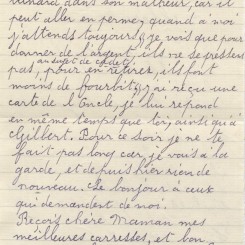 dans son malheur, car il
peut aller en perme, quand a moi
j'attends toujours, je vois que pour
donner de l'argent, ils ne se pressent
au sujet de
pas, pour en retirer, ils font
moins de fourbi, j'ai reçu une
carte de l'Oncle, je lui repond
en même temps que toi, ainsi qu'a
Gilbert. Pour ce soir je ne te
fait pas long car je vais à la
garde, et depuis hier rien de
nouveau. Le bonjour à ceux
qui demandent de moi.
Reçois chère Maman mes
meilleures carresses, et bon